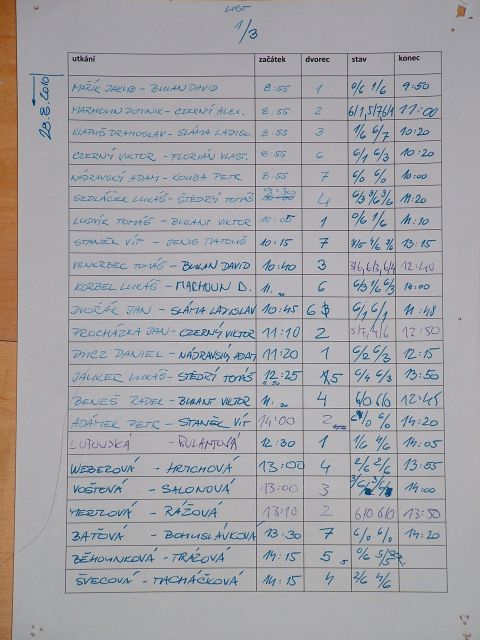 LIST
1/3
28.8.2010
utkání začátek dvorec stav konec
MAŘÍK JAKUB - BULAN DAVID 8:55 1 0/6 1/6 9:50
MARHOUN DOMINIK - CZERNÝ ALEX. 8:55 2 6/1, 5/7, 6/1 11:00
KLATUŠ DRAHOSLAV - SLÁMA LADISL. 8:55 3 1/6 6/7 10:20
CZERNÝ VIKTOR - FLORIÁN VLAST. 8:55 6 6/1 6/3 10:20
NÁDRAVSKÝ ADAM - KOUBA PETR 8:55 7 6/0 6/0 10:00
SEDLÁČEK LUKÁŠ - ŠTĚDRÝ TOMÁŠ 9:30 4 6/3 3/6 3/6 11:20
LUDVÍK TOMÁŠ - BULANT VIKTOR 10:05 1 0/6 1/6 11:10
STANĚK VÍT - JENIS MATOUŠ 10:15 7 7/5 4/6 7/6 13:15
VENKRBEC TOMÁŠ - BULAN DAVID 10:40 3 3/6, 6/3, 6/4 12:40
KORBEL LUKÁŠ - MARHOUN D. 11. 6 6/3 1/6 6/3 14:00
DVOŘÁK JAN - SLÁMA LADISLAV 10:45 6 6/1 6/1 11:48
PROCHÁZKA JAN - CZERNÝ VIKTOR 11:10 2 5/7, 4/6 12:50
DANIEL - NÁDRAVSKÝ ADAM 11:20 1 6/2 6/3 12:15
LUKÁŠ - ŠTĚDRÝ TOMÁŠ 12:25 5 6/4 6/3 13:50
BENEŠ RADEK - BULANT VIKTOR 11. 4 6/0 6/0 12:45
ADÁMEK PETR - STANĚK VÍT 14:00 2 6/0 6/ 14:20
- BULANTOVÁ 12:30 1 1/6 4/6 14:05
WEBEROVÁ - HRICHOVÁ 13:00 4 2/6 2/6 13:55
VOŠTOVÁ - SALONOVÁ 13:00 3 14:00
MERTLOVÁ - RÁŽOVÁ 13:10 2 6/0 6/0 13:50
BAŤOVÁ - BOHUSLÁVKOVÁ 13:30 7 6/0 6/0 14:20
BĚHOUNKOVÁ - TRÁZOVÁ 14:15 5 0/6 5/
ŠVECOVÁ - MACHÁČKOVÁ 14:15 4 2/6 4/6